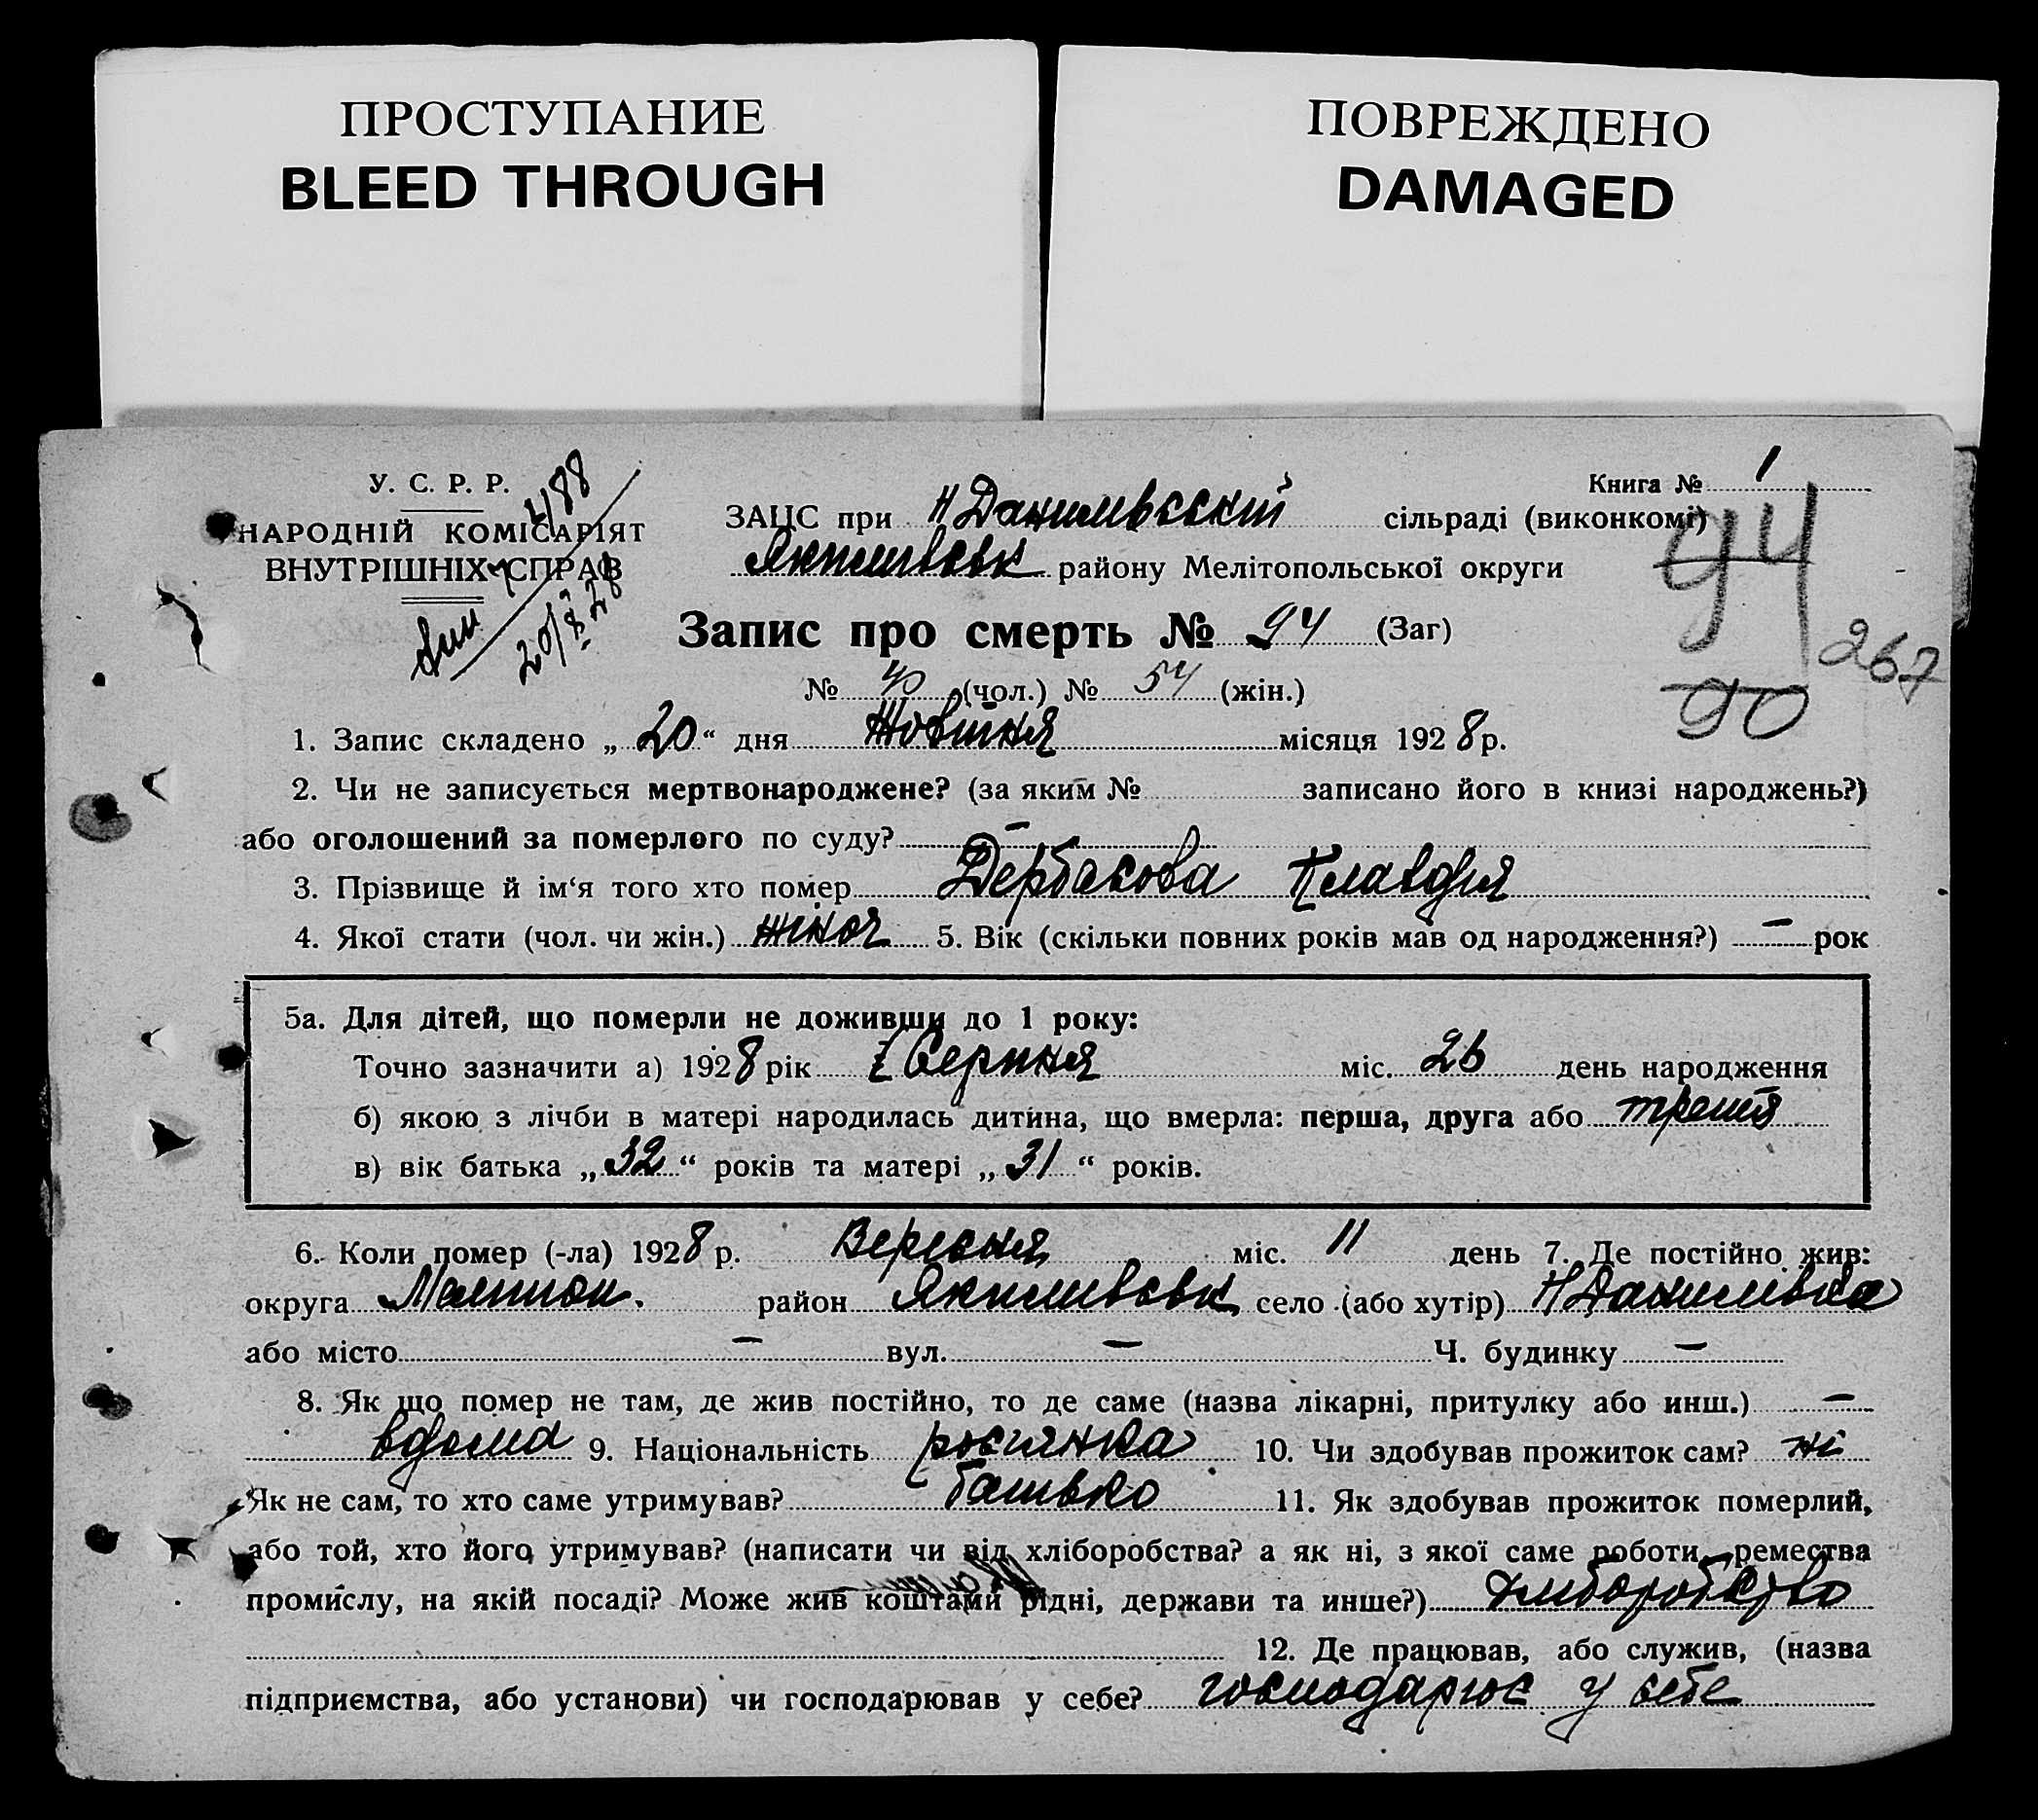 ПРОСТУПАНИЕ
BLEED THROUGH
ПОВРЕЖДЕНО
DAMAGED
У. С. Р. Р.
НАРОДНІЙ КОМІСАРІЯТ
ВНУТРІШНІХ СПРАВ
488
20/X 28
Книга № 1
ЗАЦС при Н Данилівський сільраді (виконкомі)
Якимівськ району Мелітопольської округи
94
267
90
Запис про смерть № 94 (Заг)
№ 40 (чол.) № 54 (жін.)
1. Запис складено „ 20 “ дня Жовтня місяця 1928 р.
2. Чи не записується мертвонароджене? (за яким № записано його в книзі народжень?)
або оголошений за померлого по суду? —
3. Прізвище й ім‘я того хто помер Дербасова Клавдія
4. Якої стати (чол. чи жін.) жіноч 5. Вік (скільки повних років мав од народження?) — рок
5а. Для дітей, що померли не доживши до 1 року:
Точно зазначити а) 1928 рік Серпня міс. 26 день народження
б) якою з лічби в матері народилась дитина, що вмерла: перша, друга або третя
в) вік батька „ 32 “ років та матері „ 31 “ років.
6. Коли помер (-ла) 1928 р. Вересня міс. 11 день 7. Де постійно жив:
округа Мелітоп. район Якимівськ село (або хутір) Н Данилівка
або місто — вул. — Ч. будинку —
8. Як що помер не там, де жив постійно, то де саме (назва лікарні, притулку або инш.) —
вдома 9. Національність росіянка 10. Чи здобував прожиток сам? ні
Як не сам, то хто саме утримував? батько 11. Як здобував прожиток померлий,
або той, хто його утримував? (написати чи від хліборобства? а як ні, з якої саме роботи, ремества
промислу, на якій посаді? Може жив коштами рідні, держави та инше?) хліборобство
12. Де працював, або служив, (назва
підприємства, або установи) чи господарював у себе? господарює у себе